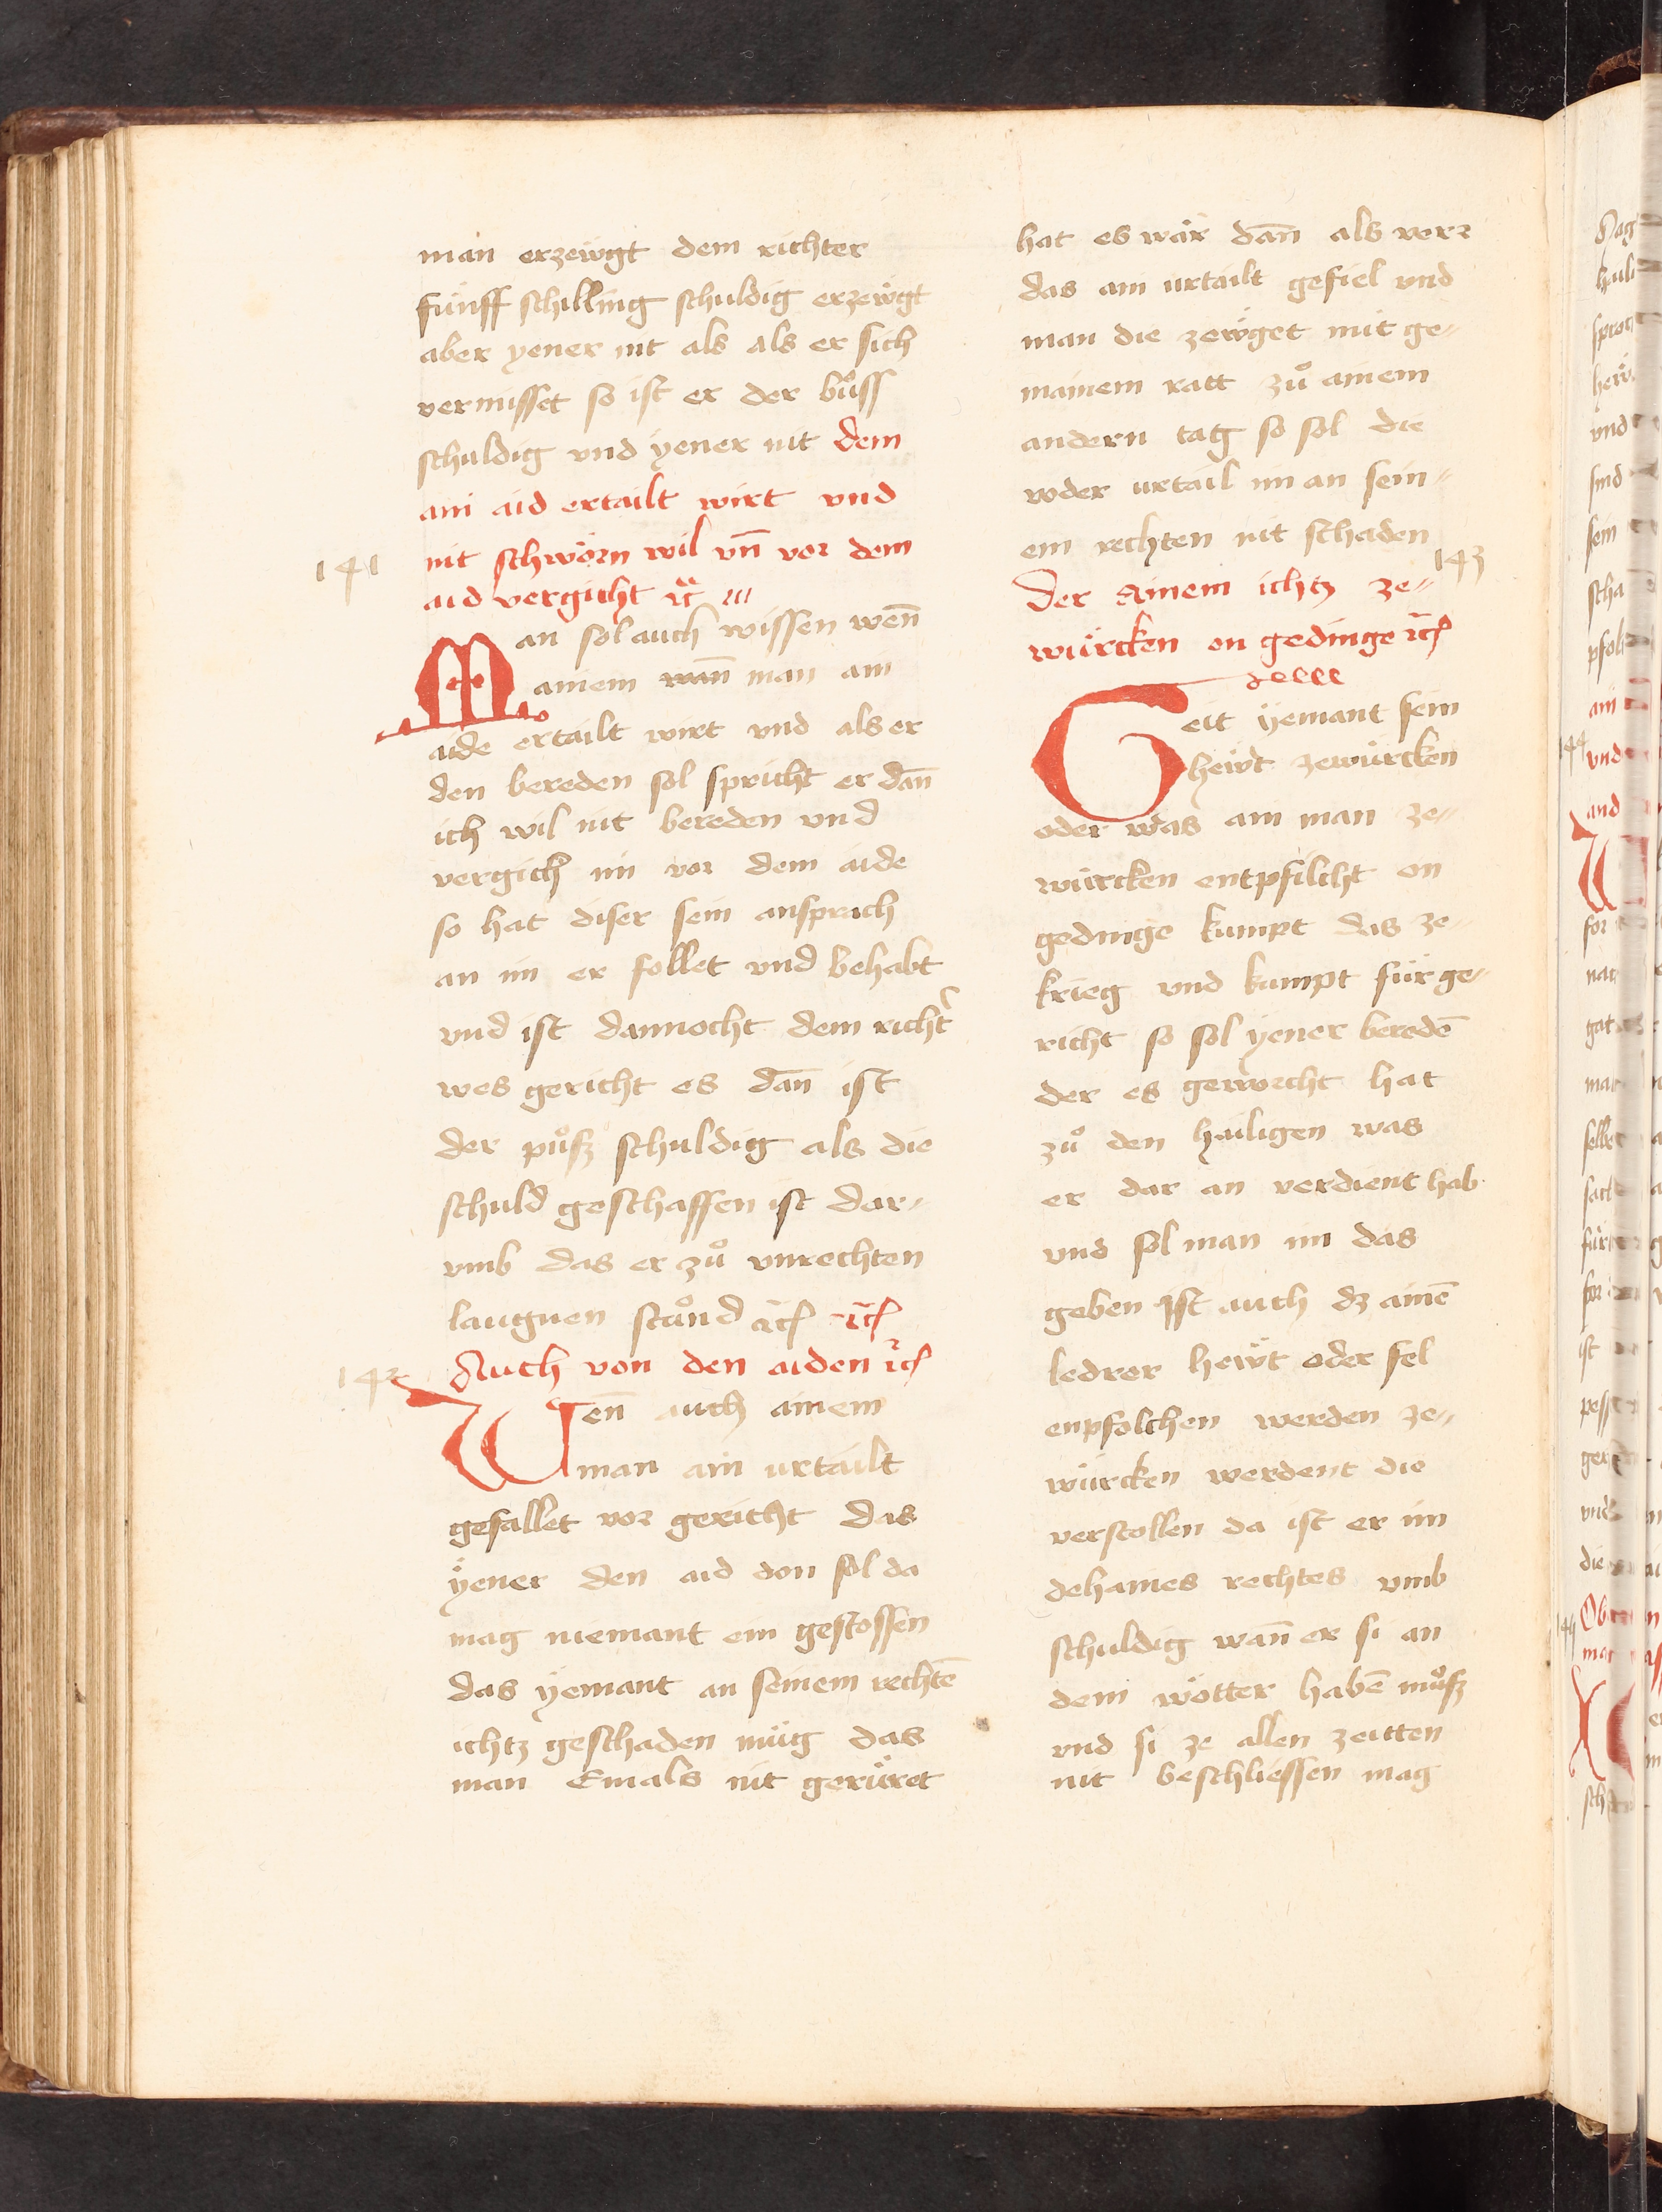 man erzewgt dem richter
fünff schilling schuldig erzewgt
aber yener nit als als er sich
vermisset so ist er der bůss
schuldig vnd yener nit dem
ain aid ertailt wirt vnd
141
nit schwörn wil vn̄ vor dem
aid vergicht ꝛc̄
Man sol auch wissen wen̄
ainem wan̄ man ain
aide ertailt wirt vnd als er
den bereden sol spricht er dan̄
ich wil nit bereden vnd
vergich im vor dem aide
so hat diser sein ansprach
an im er follet vnd behabt
vnd ist dannocht dem richt̾
wes gericht es dan̄ ist
der půsz schuldig als die
schuld geschaffen ist dar⸗
vmb das er zů vnrechten
laugnen stůnd ꝛc̄ ꝛc̄
142
Auch von den aiden ꝛc̄
Wen̄ auch ainem
man ain urtailt
gefallet vor gericht das
ÿener den aid don sol da
mag niemant ein gestossen
das ÿemant an seinem rechtē
ichtz geschaden müg das
man Emals nit gerüret
hat es wär dan̄ als verꝛ
das ain urtailt gefiel vnd
man die zewget mit ge⸗
mainem ratt zů ainem
andern tag so sol die
voder urtail im an sein⸗
em rechten nit schaden
143
Der Ainem ichtz ze⸗
würcken on gedinge ꝛc̄
Geit ÿemant sein
hewt zewürcken
oder was ain man ze⸗
würcken entpfilcht on
gedinge kumpt das ze⸗
krieg vnd kumpt für ge⸗
richt so sol ÿener beredē
der es geworcht hat
zů den hailigen was
er dar an verdient hab
vnd sol man im das
geben Ist auch dz ainē
ledrer hewt oder fel
enpfolchen werden ze⸗
würcken werdent die
verstollen da ist er im
dehaines rechtes vmb
schuldig wan̄ er si an
dem wötter habē můsz
vnd si ze allen zeitten
nit beschliessen mag
144
vnd